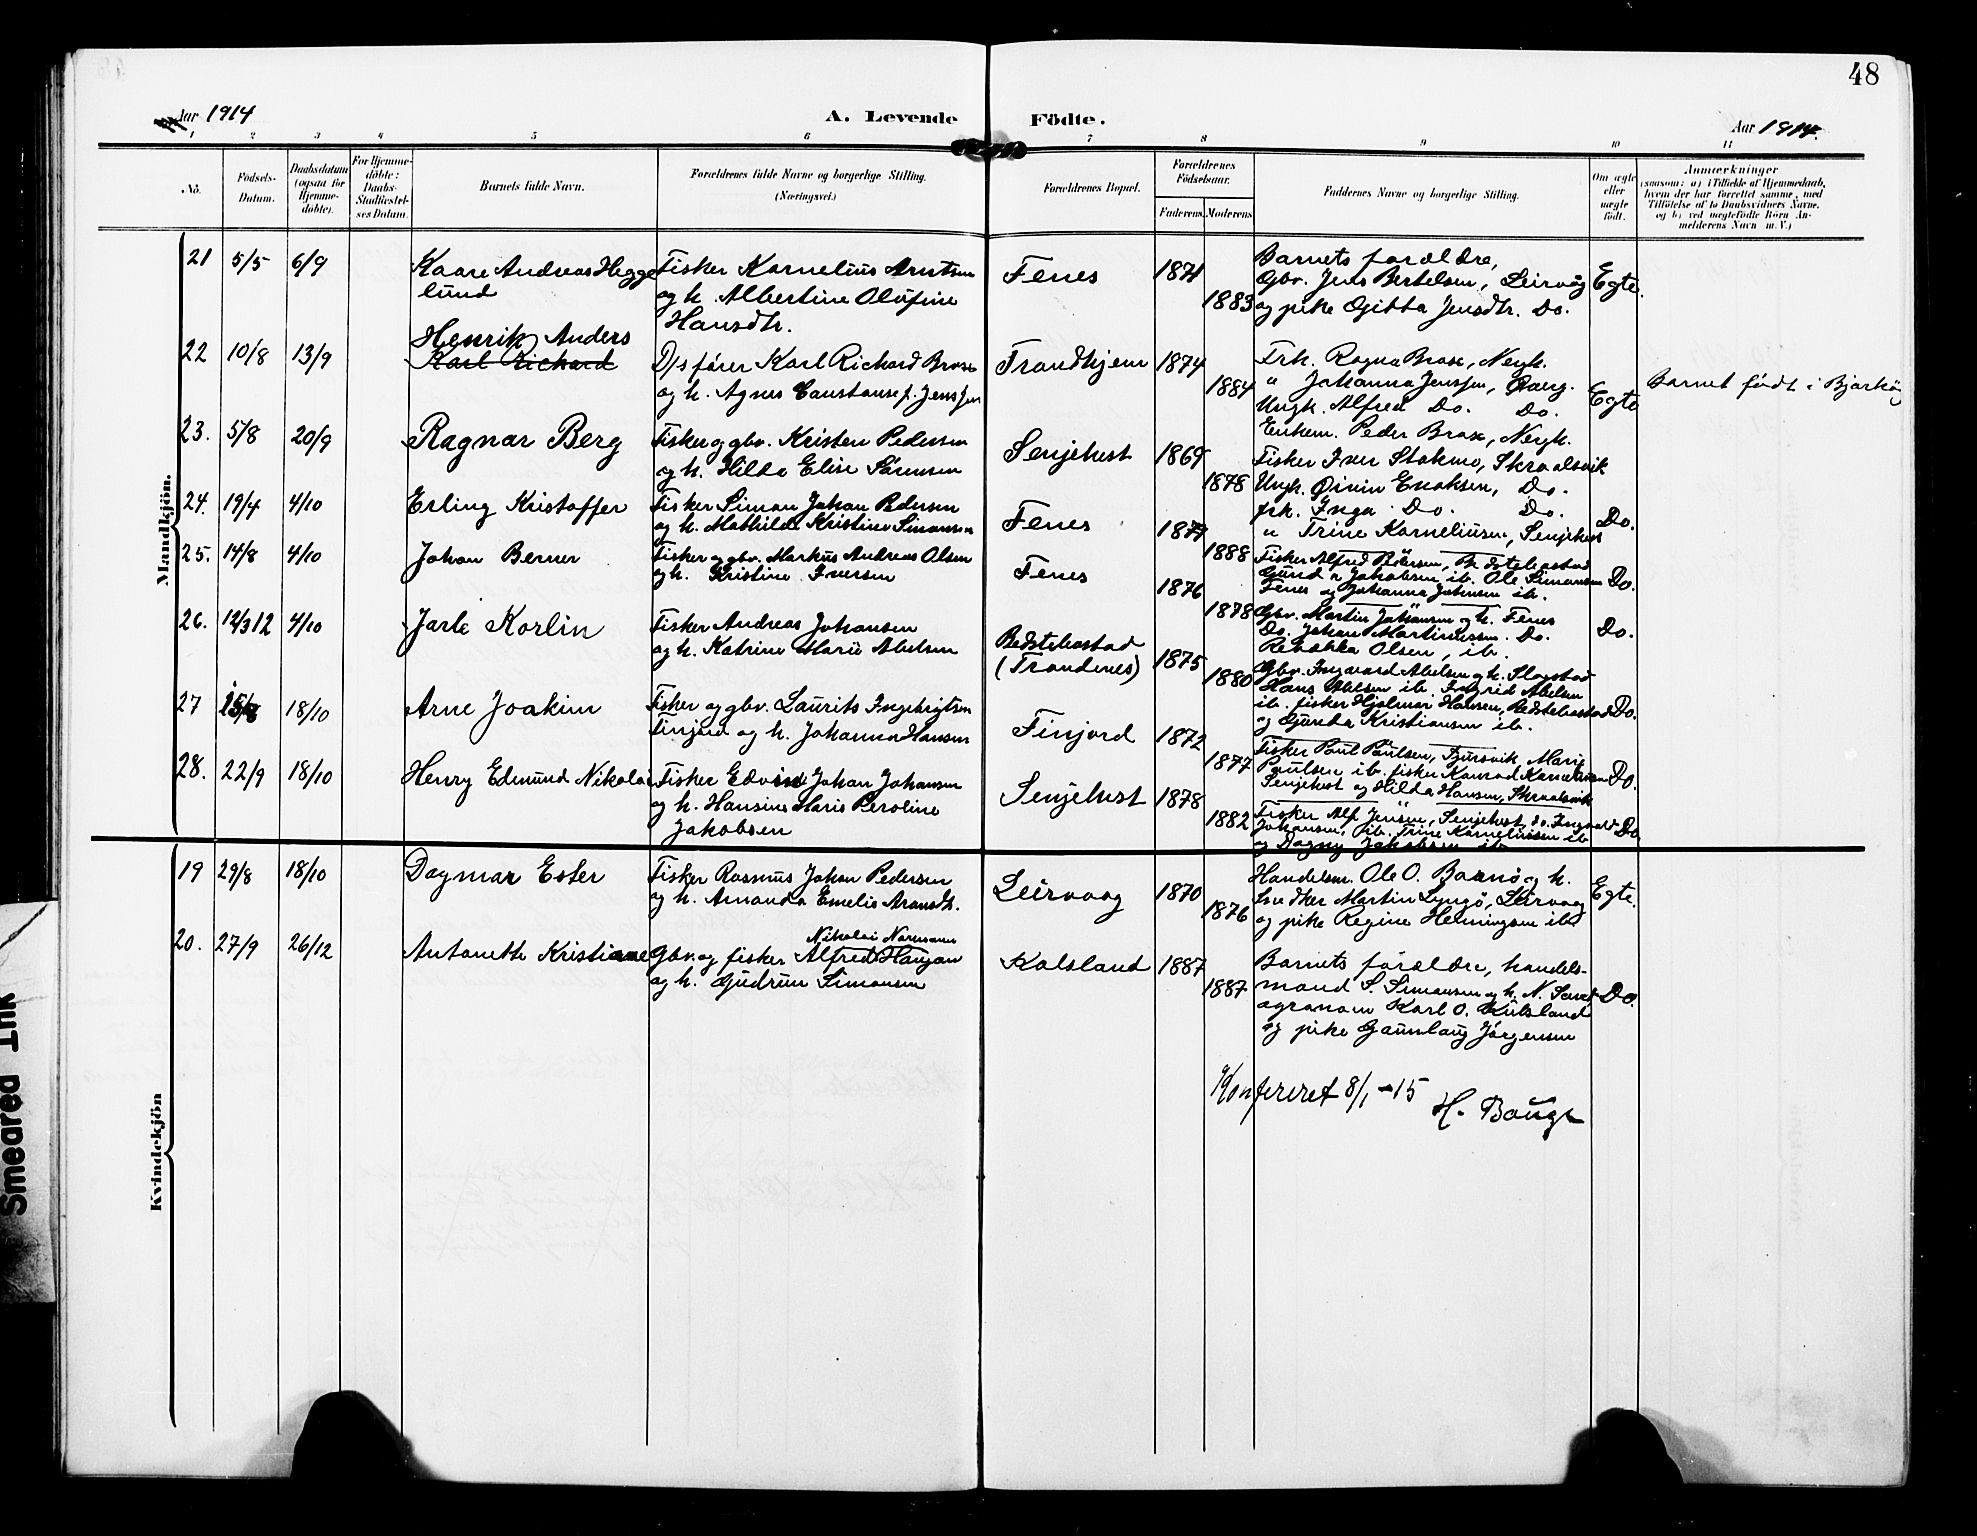 48
Aar 1914
A. Levende Födte.
Aar 1914.
1 2 3 4 5 6 7 8 9 10 11
No.
Födsels-Datum.
Daabsdatum (ogsaa for Hjemme-döbte).
For Hjemme-döbte: Daabs-Stadfæstel-ses Datum.
Barnets fulde Navn.
Forældrenes fulde Navne og borgerlige Stilling. (Næringsvei.)
Forældrenes Bopæl.
Forældrenes Födselsaar.
Faderens. Moderens.
Faddernes Navne og borgerlige Stilling.
Om ægte eller uægte födt.
Anmærkninger
(saasom: a) i Tilfælde af Hjemmedaab,
hvem der har forrettet samme, med
Tilföielse af to Daabsvidners Navne,
og b) ved uægtefödte Börn An-
melderens Navn m. V.)
Mandkjön.
21 5/5 6/9 Kaare Andreas Hegge
lund
Fisker Kornelius Arntsen
og h. Albertine Olufine
Hansdtr.
Fenes 1871 1883
Barnets forældre,
Gbr. Jens Bertelsen, Leirvåg
og pike Gitta Jensdtr. Do.
Egte.
22 10/8 13/9 Henrik Anders
Karl Richard
D/s fører Karl Richard Brox
og h. Agnes Constanse f. Jenssen
Trondhjem 1874 1884
Frk. Ragna Brox, Nergk.
" Johanna Jenssen,
Ungk. Alfred Do. Do.
Enkem. Peder Brox, Nergk.
Egte
Barnet født i Bjarkøy
23. 5/8 20/9 Ragnar Berg
Fisker og gbr. Kristen Pedersen
og h. Hilda Elise Sørensen
Senjehest 1869 1878
Fisker Iver Stokmo, Skrolsvik
Ungk. Øivin Enoksen, Do.
frk. Inga Do. Do.
" Trine Korneliusen, Senjehest
Do.
24. 19/4 4/10 Erling Kristoffer
Fisker Simon Johan Pedersen
og h. Mathilde Kristine Simonsen
Fenes 1879 1888
Fisker Alfred Pedersen,
Jakobsen ib. Ole Simonsen
Fenes og Johanna Johnsen ib.
Do.
25. 14/8 4/10 Johan Berner
Fisker og gbr. Markus Andreas Olsen
og h. Kristine Iversen
Fenes 1876 1878
Gbr. Martin Johansen og h. Fenes
Do. Johan Martinussen. Do.
Rebekka Olsen, ib.
Do.
26. 12/3 12 4/10 Jarle Korlin
Fisker Andreas Johansen
og h. Katrine Marie Abelsen
Redstebostad
(Trondenes) 1875 1880
Gbr. Ingvard Abelsen og h. Slagstad
Hans Abelsen ib. Ingrid Abelsen
ib. fisker Hjalmar Hansen, Redstebostad
og Gunda Kristiansen ib.
Do.
27 18/10 Arne Joakim
Fisker og gbr. Laurits Ingebrigtsen
Finjord og h. Johanna Hansen
Finjord 1872 1877
Fisker Paul Paulsen, Marie
Paulsen ib. fisker Konrad
Senjehest og Hilda Hansen, Skrolsvik
Do.
28. 22/9 18/10 Henry Edmund Nikolai
Fisker Edvin Johan Johansen
og h. Hansine Maris Peroline
Jakobsen
Senjehest 1878 1882
Fisker Alf Jensen, Senjehest, do. Ingvald
Johansen, ib. Trine Korneliussen ib
og Dagny Jakobsen ib.
Do
Kvindekjön
19 29/8 18/10 Dagmar Ester
Fisker Rasmus Johan Pedersen
og h. Amanda Emelie
Leirvaag 1870 1876
Handelsm. Ole O. og h.
Martin Lyngø, Leirvaag
og pike Regine Henningsen ib
Egte.
20. 27/9 26/12 Antonette Kristiane
Nikolai Normann
Gbr. og fisker Alfred Haugan
og h. Gudrun Simonsen
Kalsland 1887 1887
Barnets forældre, handels-
mand S. Simonsen og h. N.
agronom Karl O. Kulsland
og pike Gaunlaug Jørgensen
Do.
Konfereret 8/1 -15
H. Bauge
Smeared Ink